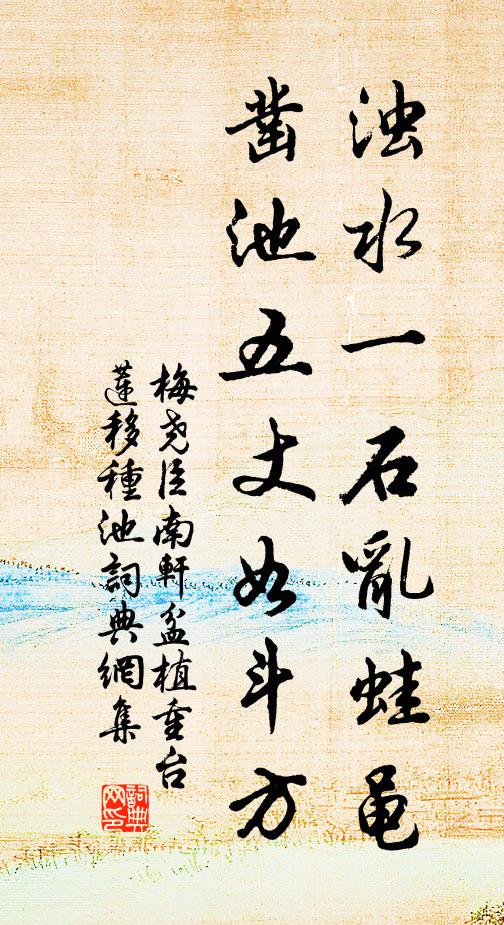 浊水一石亂蛙黾
凿池五丈如斗方
梅尧臣南軒盆植重台
蓮移種池詞典網集
詞典
网印